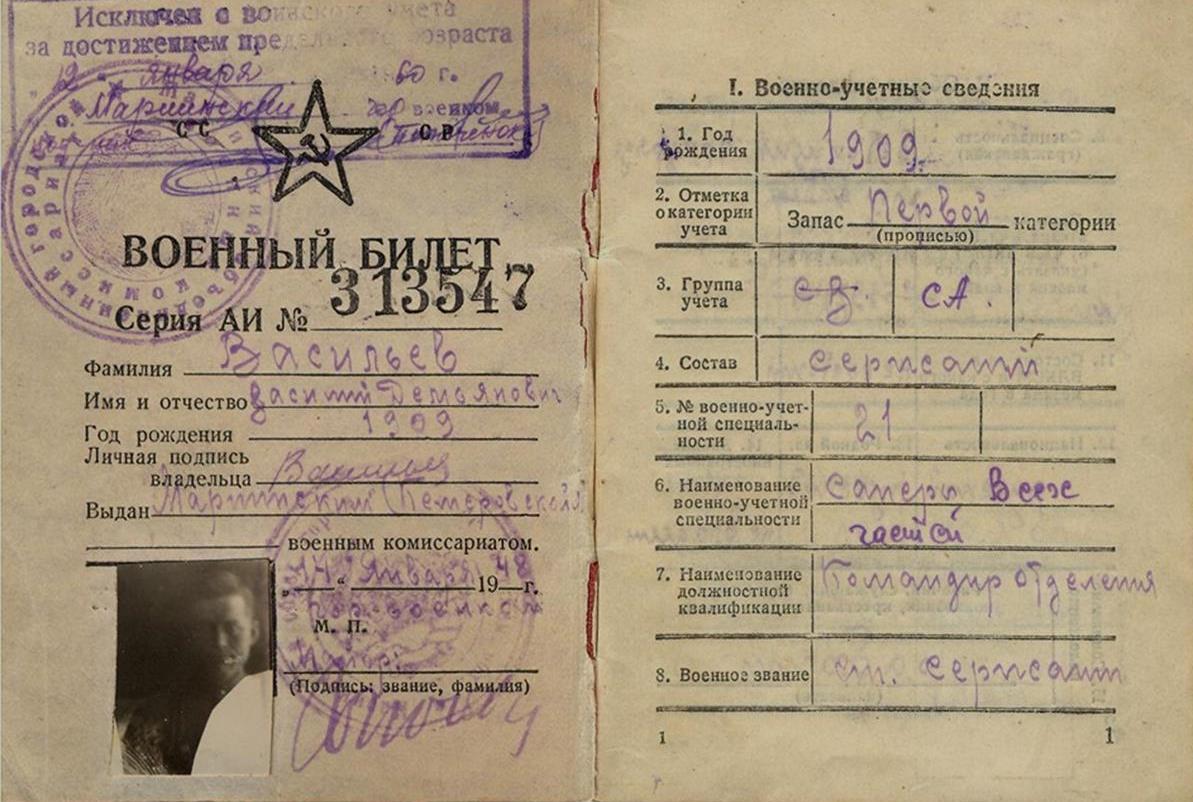 Исключен с воинского учета
за достижением предельного возраста
12 января 60 г.
Мариинский военком
СС СР
ВОЕННЫЙ БИЛЕТ
Серия АИ № 313547
Фамилия Васильев
Имя и отчество Василий Демьянович
Год рождения 1909
Личная подпись
владельца
Выдан Мариинским Кемеровской
военным комиссариатом.
"14" января 1948 г.
Гор военком
М. П.
Майор
(Подпись: звание, фамилия)
I. Военно-учетные сведения
1. Год рождения 1909.
2. Отметка о категории учета Запас Первой категории
(прописью)
3. Группа учета СА.
4. Состав сержантский
5. № военно-учет-
ной специаль-
ности 21
6. Наименование военно-учетной специальности Саперы Всех
частей
7. Наименование должностной квалификации Командир отделения
8. Военное звание ст. сержант
1 1